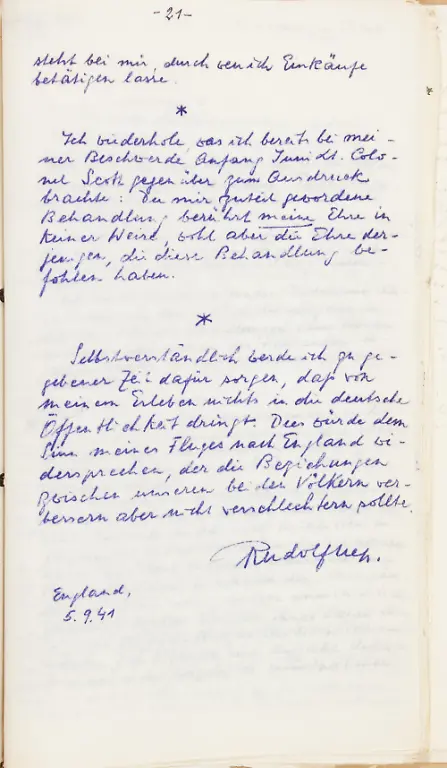 -21-
steht bei mir, durch wen ich Einkäufe
betätigen lasse.
*
Ich wiederhole, was ich bereits bei mei-
ner Beschwerde Anfang Juni dt. Colo-
nel Scott gegenüber zum Ausdruck
brachte: Die mir zuteil gewordene
Behandlung berührt meine Ehre in
keiner Weise, wohl aber die Ehre der-
jenigen, die diese Behandlung be-
fohlen haben.
*
Selbstverständlich werde ich zu ge-
gebener Zeit dafür sorgen, daß von
meinem Erleben nichts in die deutsche
Öffentlichkeit dringt. Dies würde dem
Sinn meines Fluges nach England wi-
dersprechen, der die Beziehungen
zwischen unseren beiden Völkern ver-
bessern aber nicht verschlechtern sollte.
Rudolf Heß.
England,
5.9.41